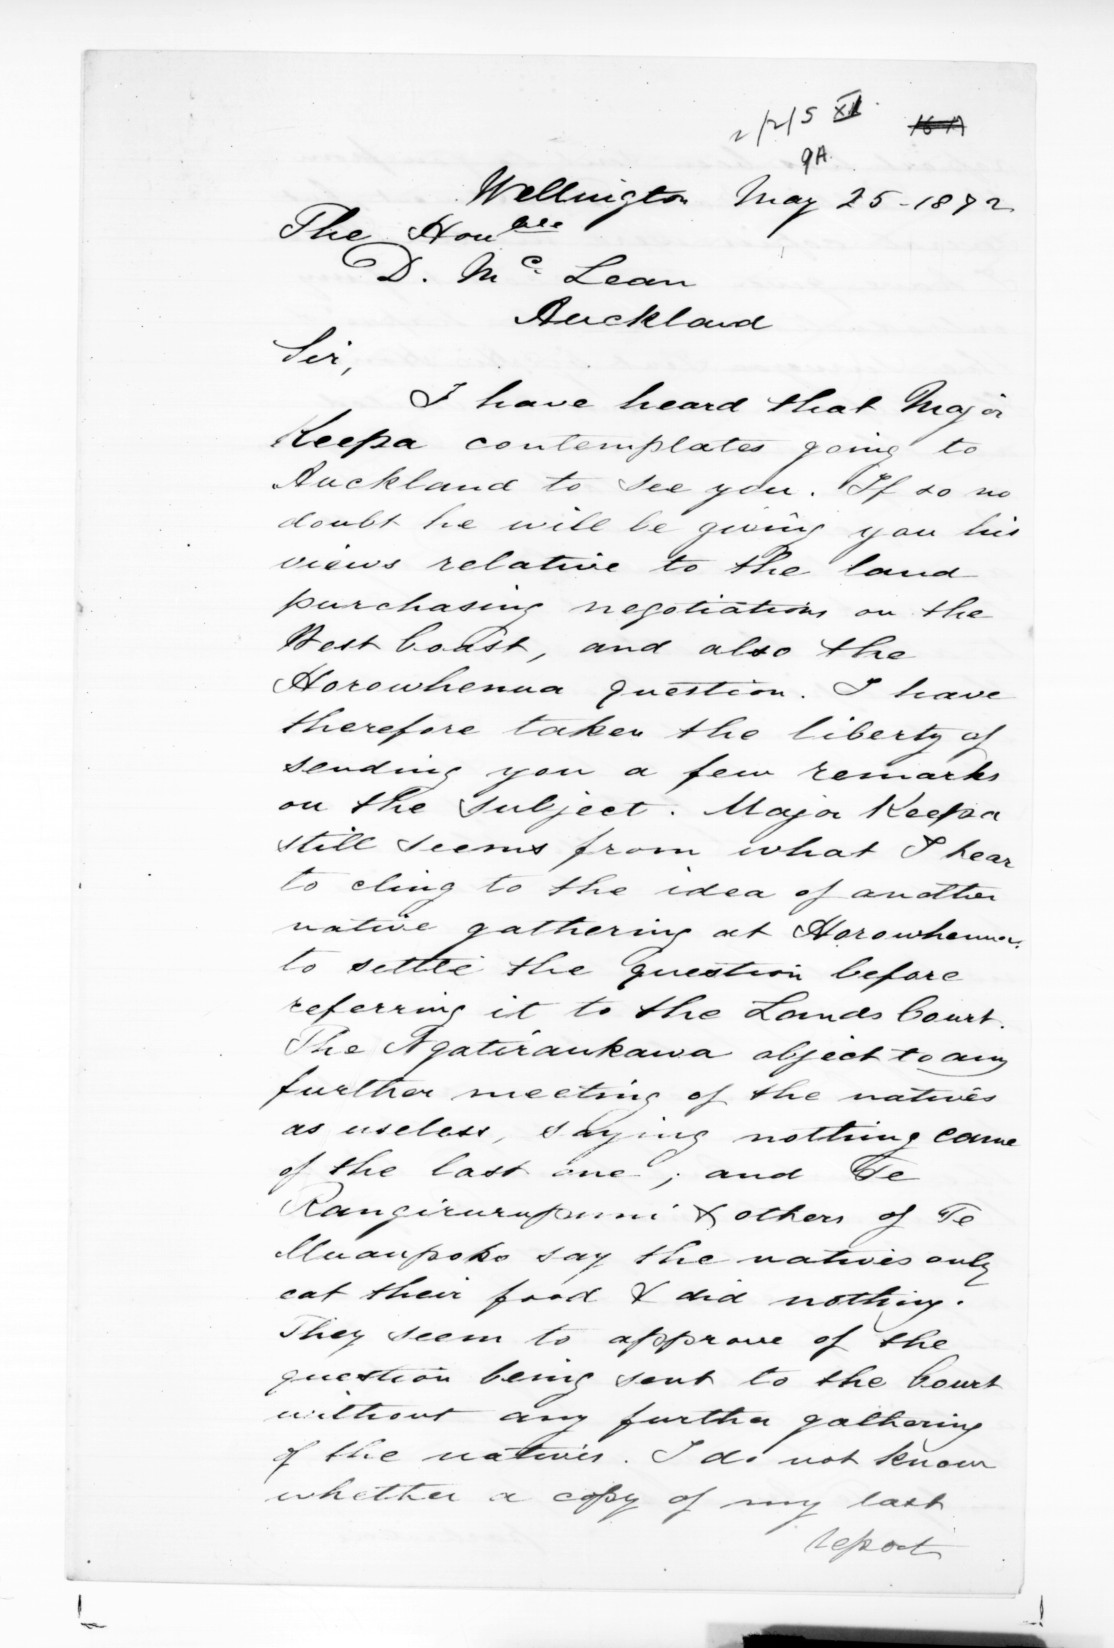 2/2/5 XI
9A.
Wellington May 25-1872
The Honble
D. Mc. Lean
Auckland
Sir,
I have heard that Major
Keepa contemplates going to
Auckland to see you. If so no
doubt he will be giving you his
views relative to the land
purchasing negotiations on the
West Coast, and also the
Horowhenua question. I have
therefore taken the liberty of
sending you a few remarks
on the subject. Major Keepa
still seems from what I hear
to cling to the idea of another
native gathering at Horowhenua,
to settle the question before
referring it to the Lands Court.
The Ngatiraukawa object to any
further meeting of the natives
as useless, saying nothing came
of the last one; and Te
Rangirurupuni & others of Te
Muaupoko say the natives only
eat their food & did nothing.
They seem to approve of the
question being sent to the Court
without any further gathering
of the natives. I do not know
whether a copy of my last
report